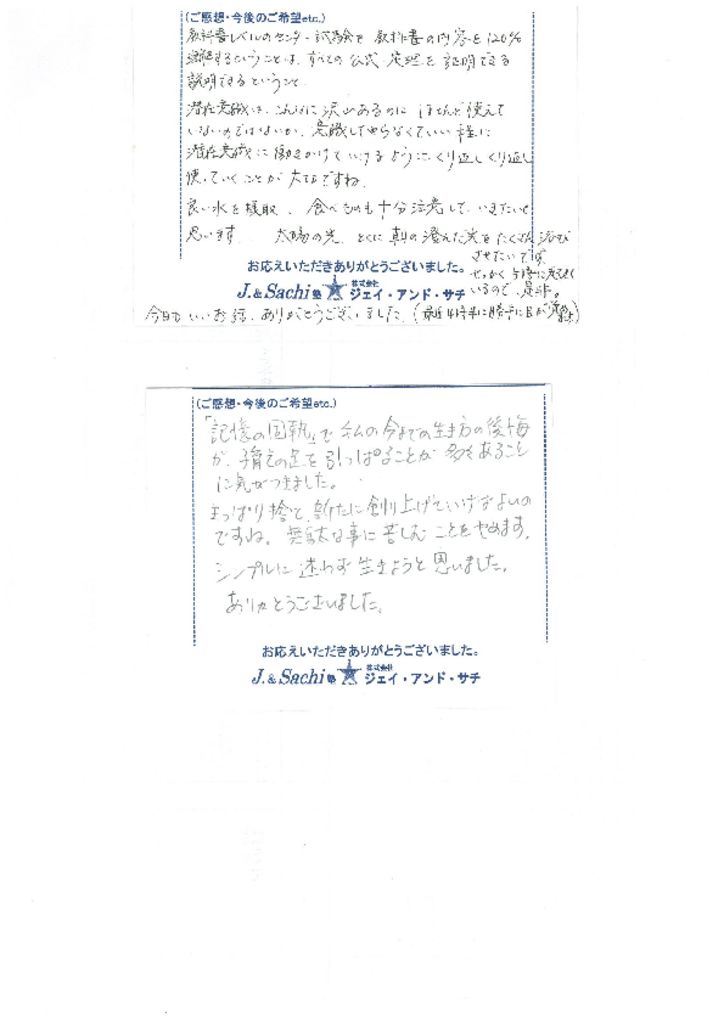 (ご感想・今後のご希望etc.)
教科書レベルのセンター試験を 教科書の内容を120%
理解するということは、すべての公式、定理を証明できる
説明できるということ。
潜在意識は、こんなに沢山あるのに ほとんど使えて
いないのではないか、意識してやらなくていい程に
潜在意識に働きかけていけるようにくり返しくり返し
使っていくことが大切ですね。
良い水を摂取、食べものも十分注意していきたいと
思います。 太陽の光、とくに朝の澄んだ光をたくさん浴び
させたいです。
せっかく5時に起きて
いるので、是非。
お応えいただきありがとうございました。
J.&Sachi塾 株式会社 ジェイ・アンド・サチ
今日もいいお話、ありがとうございました。(最近4時半に勝手に目が覚め)
(ご感想・今後のご希望etc.)
「記憶の固執」で私の今までの生き方の後悔
が、子育ての足を引っぱることが多々あること
に気がつきました。
きっぱり捨て、新たに創り上げていけばよいの
ですね。無駄な事に苦しむことをやめます。
シンプルに迷わず生きようと思いました。
ありがとうございました。
お応えいただきありがとうございました。
J.&Sachi塾 株式会社 ジェイ・アンド・サチ